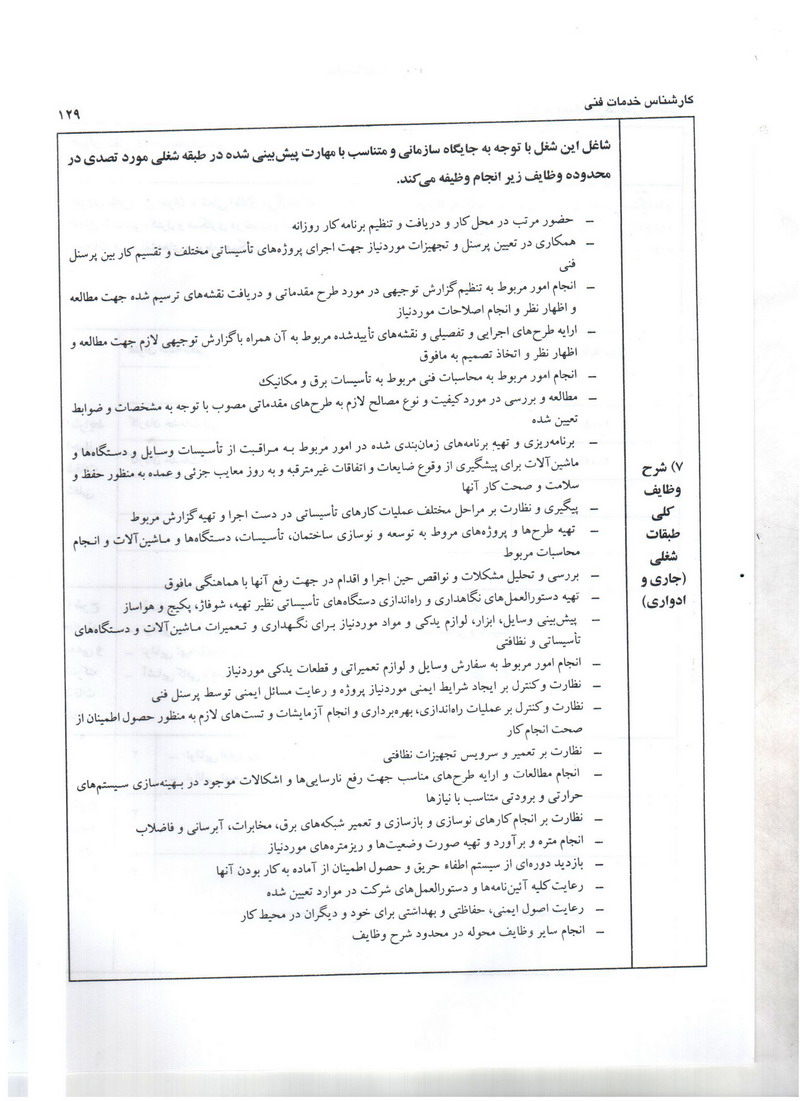 کارشناس خدمات فنی
۱۲۹
شاغل این شغل با توجه به جایگاه سازمانی و متناسب با مهارت پیش‌بینی شده در طبقه شغلی مورد تصدی در
محدوده وظایف زیر انجام وظیفه می‌کند.
– حضور مرتب در محل کار و دریافت و تنظیم برنامه کار روزانه
– همکاری در تعیین پرسنل و تجهیزات موردنیاز جهت اجرای پروژه‌های تأسیساتی مختلف و تقسیم کار بین پرسنل
فنی
– انجام امور مربوط به تنظیم گزارش توجیهی در مورد طرح مقدماتی و دریافت نقشه‌های ترسیم شده جهت مطالعه
و اظهار نظر و انجام اصلاحات موردنیاز
– ارایه طرح‌های اجرایی و تفصیلی و نقشه‌های تأییدشده مربوط به آن همراه با گزارش توجیهی لازم جهت مطالعه و
اظهار نظر و اتخاذ تصمیم به مافوق
– انجام امور مربوط به محاسبات فنی مربوط به تأسیسات برق و مکانیک
– مطالعه و بررسی در مورد کیفیت و نوع مصالح لازم به طرح‌های مقدماتی مصوب با توجه به مشخصات و ضوابط
تعیین شده
– برنامه‌ریزی و تهیه برنامه‌های زمان‌بندی شده در امور مربوط به مراقبت از تأسیسات وسایل و دستگاه‌ها و
ماشین‌آلات برای پیشگیری از وقوع ضایعات و اتفاقات غیرمترقبه و به روز معایب جزئی و عمده به منظور حفظ و
سلامت و صحت کار آنها
– پیگیری و نظارت بر مراحل مختلف عملیات کارهای تأسیساتی در دست اجرا و تهیه گزارش مربوط
– تهیه طرح‌ها و پروژه‌های مروط به توسعه و نوسازی ساختمان، تأسیسات، دستگاه‌ها و ماشین‌آلات و انجام
محاسبات مربوط
– بررسی و تحلیل مشکلات و نواقص حین اجرا و اقدام در جهت رفع آنها با هماهنگی مافوق
– تهیه دستورالعمل‌های نگاهداری و راه‌اندازی دستگاه‌های تأسیساتی نظیر تهیه، شوفاژ، پکیج و هواساز
– پیش‌بینی وسایل، ابزار، لوازم یدکی و مواد موردنیاز برای نگهداری و تعمیرات ماشین‌آلات و دستگاه‌های
تأسیساتی و نظافتی
– انجام امور مربوط به سفارش وسایل و لوازم تعمیراتی و قطعات یدکی موردنیاز
– نظارت و کنترل بر ایجاد شرایط ایمنی موردنیاز پروژه و رعایت مسائل ایمنی توسط پرسنل فنی
– نظارت و کنترل بر عملیات راه‌اندازی، بهره‌برداری و انجام آزمایشات و تست‌های لازم به منظور حصول اطمینان از
صحت انجام کار
– نظارت بر تعمیر و سرویس تجهیزات نظافتی
– انجام مطالعات و ارایه طرح‌های مناسب جهت رفع نارسایی‌ها و اشکالات موجود در بهینه‌سازی سیستم‌های
حرارتی و برودتی متناسب با نیازها
– نظارت بر انجام کارهای نوسازی و بازسازی و تعمیر شبکه‌های برق، مخابرات، آبرسانی و فاضلاب
– انجام متره و برآورد و تهیه صورت وضعیت‌ها و ریزمتره‌های موردنیاز
– بازدید دوره‌ای از سیستم اطفاء حریق و حصول اطمینان از آماده به کار بودن آنها
– رعایت کلیه آئین‌نامه‌ها و دستورالعمل‌های شرکت در موارد تعیین شده
– رعایت اصول ایمنی، حفاظتی و بهداشتی برای خود و دیگران در محیط کار
– انجام سایر وظایف محوله در محدود شرح وظایف
۷) شرح
وظایف
کلی
طبقات
شغلی
(جاری و
ادواری)